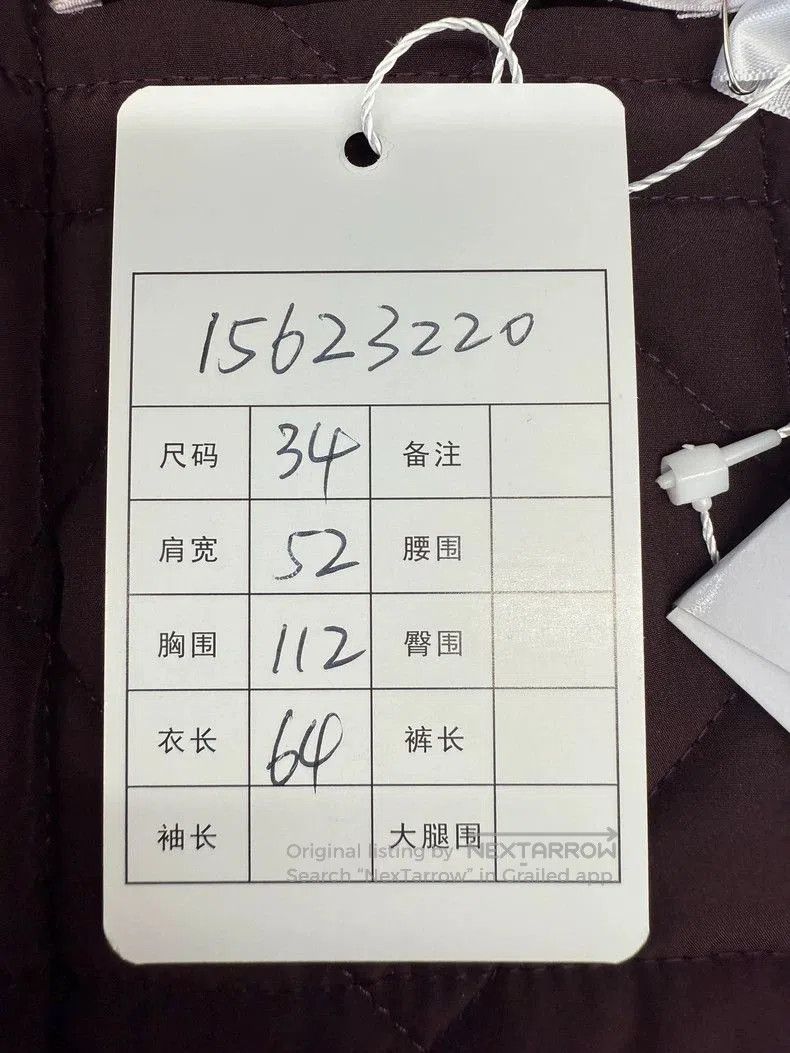 15623220
尺码 34 备注
肩宽 52 腰围
胸围 112 臀围
衣长 64 裤长
袖长 大腿围
Original listing by NEXTARROW
Search "NexTarrow" in Grailed app